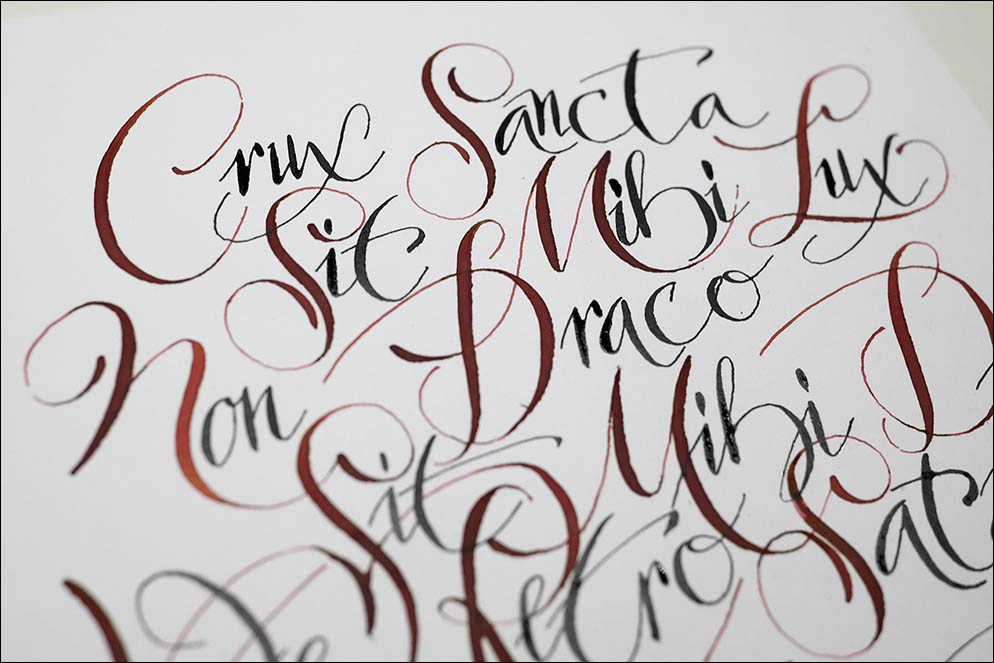 Crux Sancta
Sit Mihi Lux
Non Draco
Sit Mihi D
Retro Sat